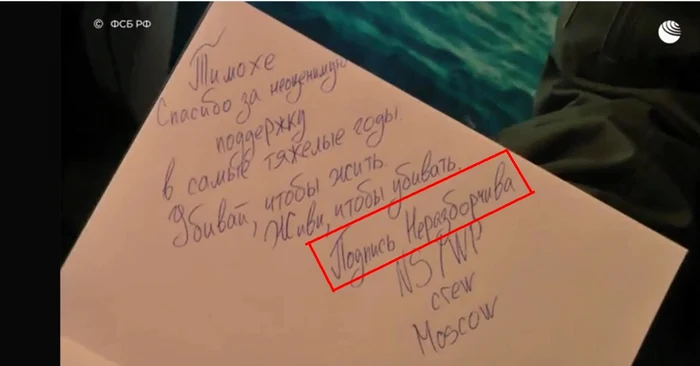 © ФСБ РФ
Тимохе
Спасибо за неоценимую
поддержку
в самые тяжелые годы.
Убивай, чтобы жить.
Живи, чтобы убивать.
Подпись Неразборчива
NS/WP
crew
Moscow